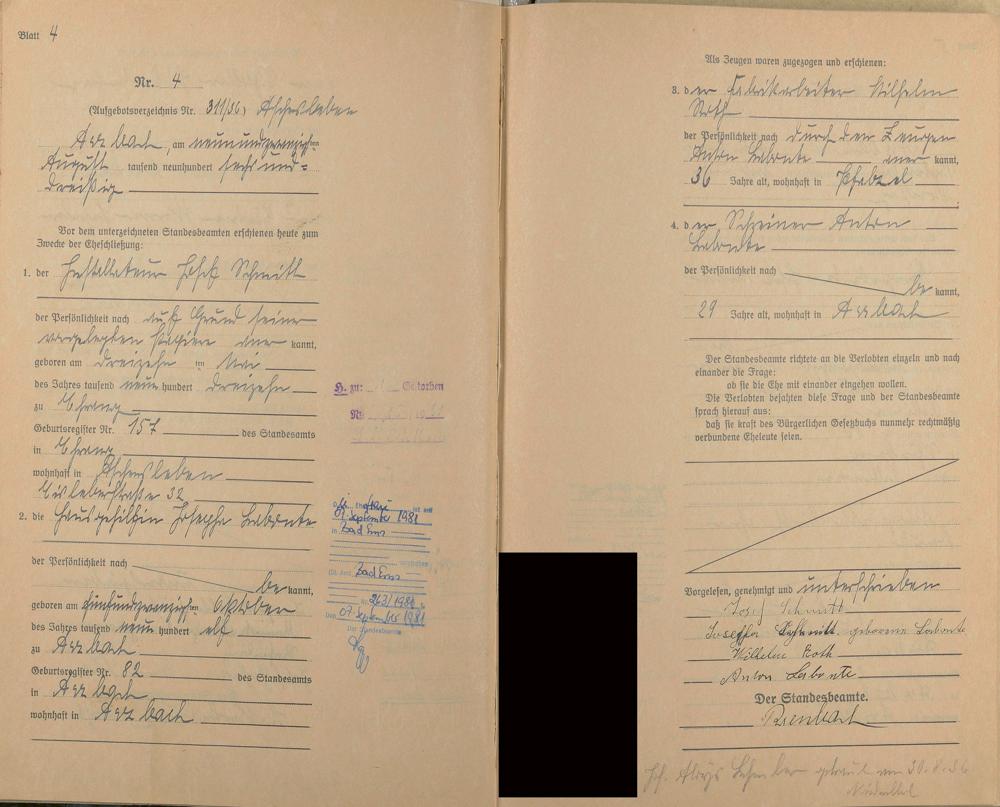 Blatt 4
Nr. 4
(Aufgebotsverzeichnis Nr. 311/36) Aschersleben
Arzbach, am neunundzwanzigsten
August tausend neunhundert sechsund=
dreißig
Vor dem unterzeichneten Standesbeamten erschienen heute zum
Zwecke der Eheschließung:
1. der Installateur Josef Schmitt
der Persönlichkeit nach auf Grund seiner
vorgelegten Papiere aner kannt,
geboren am dreizehnten Mai
des Jahres tausend neun hundert dreizehn
zu Ehrang
Geburtsregister Nr. 157 des Standesamts
in Ehrang
wohnhaft in Aschersleben
Eisleberstraße 32
2. die Hausgehilfin Josepha Labonte
der Persönlichkeit nach be kannt,
geboren am fünfundzwanzigsten Oktober
des Jahres tausend neun hundert elf
zu Arzbach
Geburtsregister Nr. 82 des Standesamts
in Arzbach
wohnhaft in Arzbach
H. zu: Gestorben
Nr.
Ehefrau ist am
01. September 1981
in Bad Ems
Bad Ems
Nr. 263/1981
Den 07. September 1981
Der Standesbeamte
Als Zeugen waren zugezogen und erschienen:
3. der Fabrikarbeiter Wilhelm
Roth
der Persönlichkeit nach durch den Zeugen
Anton Labonte aner kannt,
36 Jahre alt, wohnhaft in
4. der Schreiner Anton
Labonte
der Persönlichkeit nach be kannt,
29 Jahre alt, wohnhaft in Arzbach
Der Standesbeamte richtete an die Verlobten einzeln und nach
einander die Frage:
ob sie die Ehe mit einander eingehen wollen.
Die Verlobten bejahten diese Frage und der Standesbeamte
sprach hierauf aus:
daß sie kraft des Bürgerlichen Gesetzbuchs nunmehr rechtmäßig
verbundene Eheleute seien.
Vorgelesen, genehmigt und unterschrieben
Josef Schmitt
Joseffa Schmitt geborene Labonte
Wilhelm Roth
Anton Labonte
Der Standesbeamte.
getraut am 30.8.36